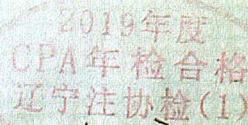 2019年度
CPA年检合格
辽宁注协检(1)